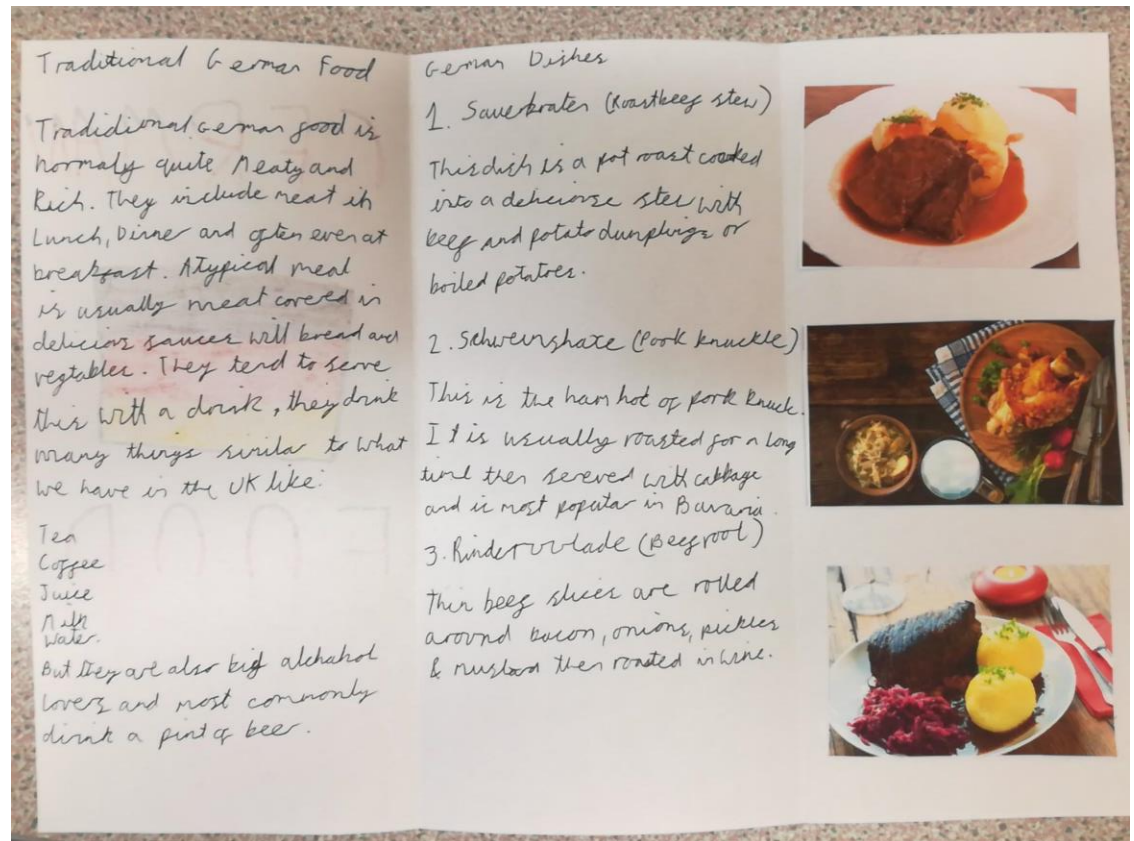 Traditional German Food
Tradidional German food is
normaly quite Meaty and
Rich. They include meat in
Lunch, Dinner and often even at
breakfast. A typical meal
is usually meat covered in
delicios sauces with bread and
vegtables. They tend to serve
this with a drink, they drink
many things similar to what
we have in the UK like:
Tea
Coffee
Juice
Milk
Water.
But they are also big alchahol
lovers and most commonly
drink a pint of beer.
German Dishes
1. Sauerbraten (Roastbeef stew)
This dish is a pot roast cooked
into a deliciouse stew with
beef and potato dumplings or
boiled potatoes.
2. Schweinshaxe (Pork knuckle)
This is the ham hot of pork knuck.
It is usually roasted for a long
time then sereved with cabbage
and is most popular in Bavaria.
3. Rinderroulade (Beef rool)
Thin beef slices are rolled
around bacon, onions, pickles
& mustard then roasted in wine.